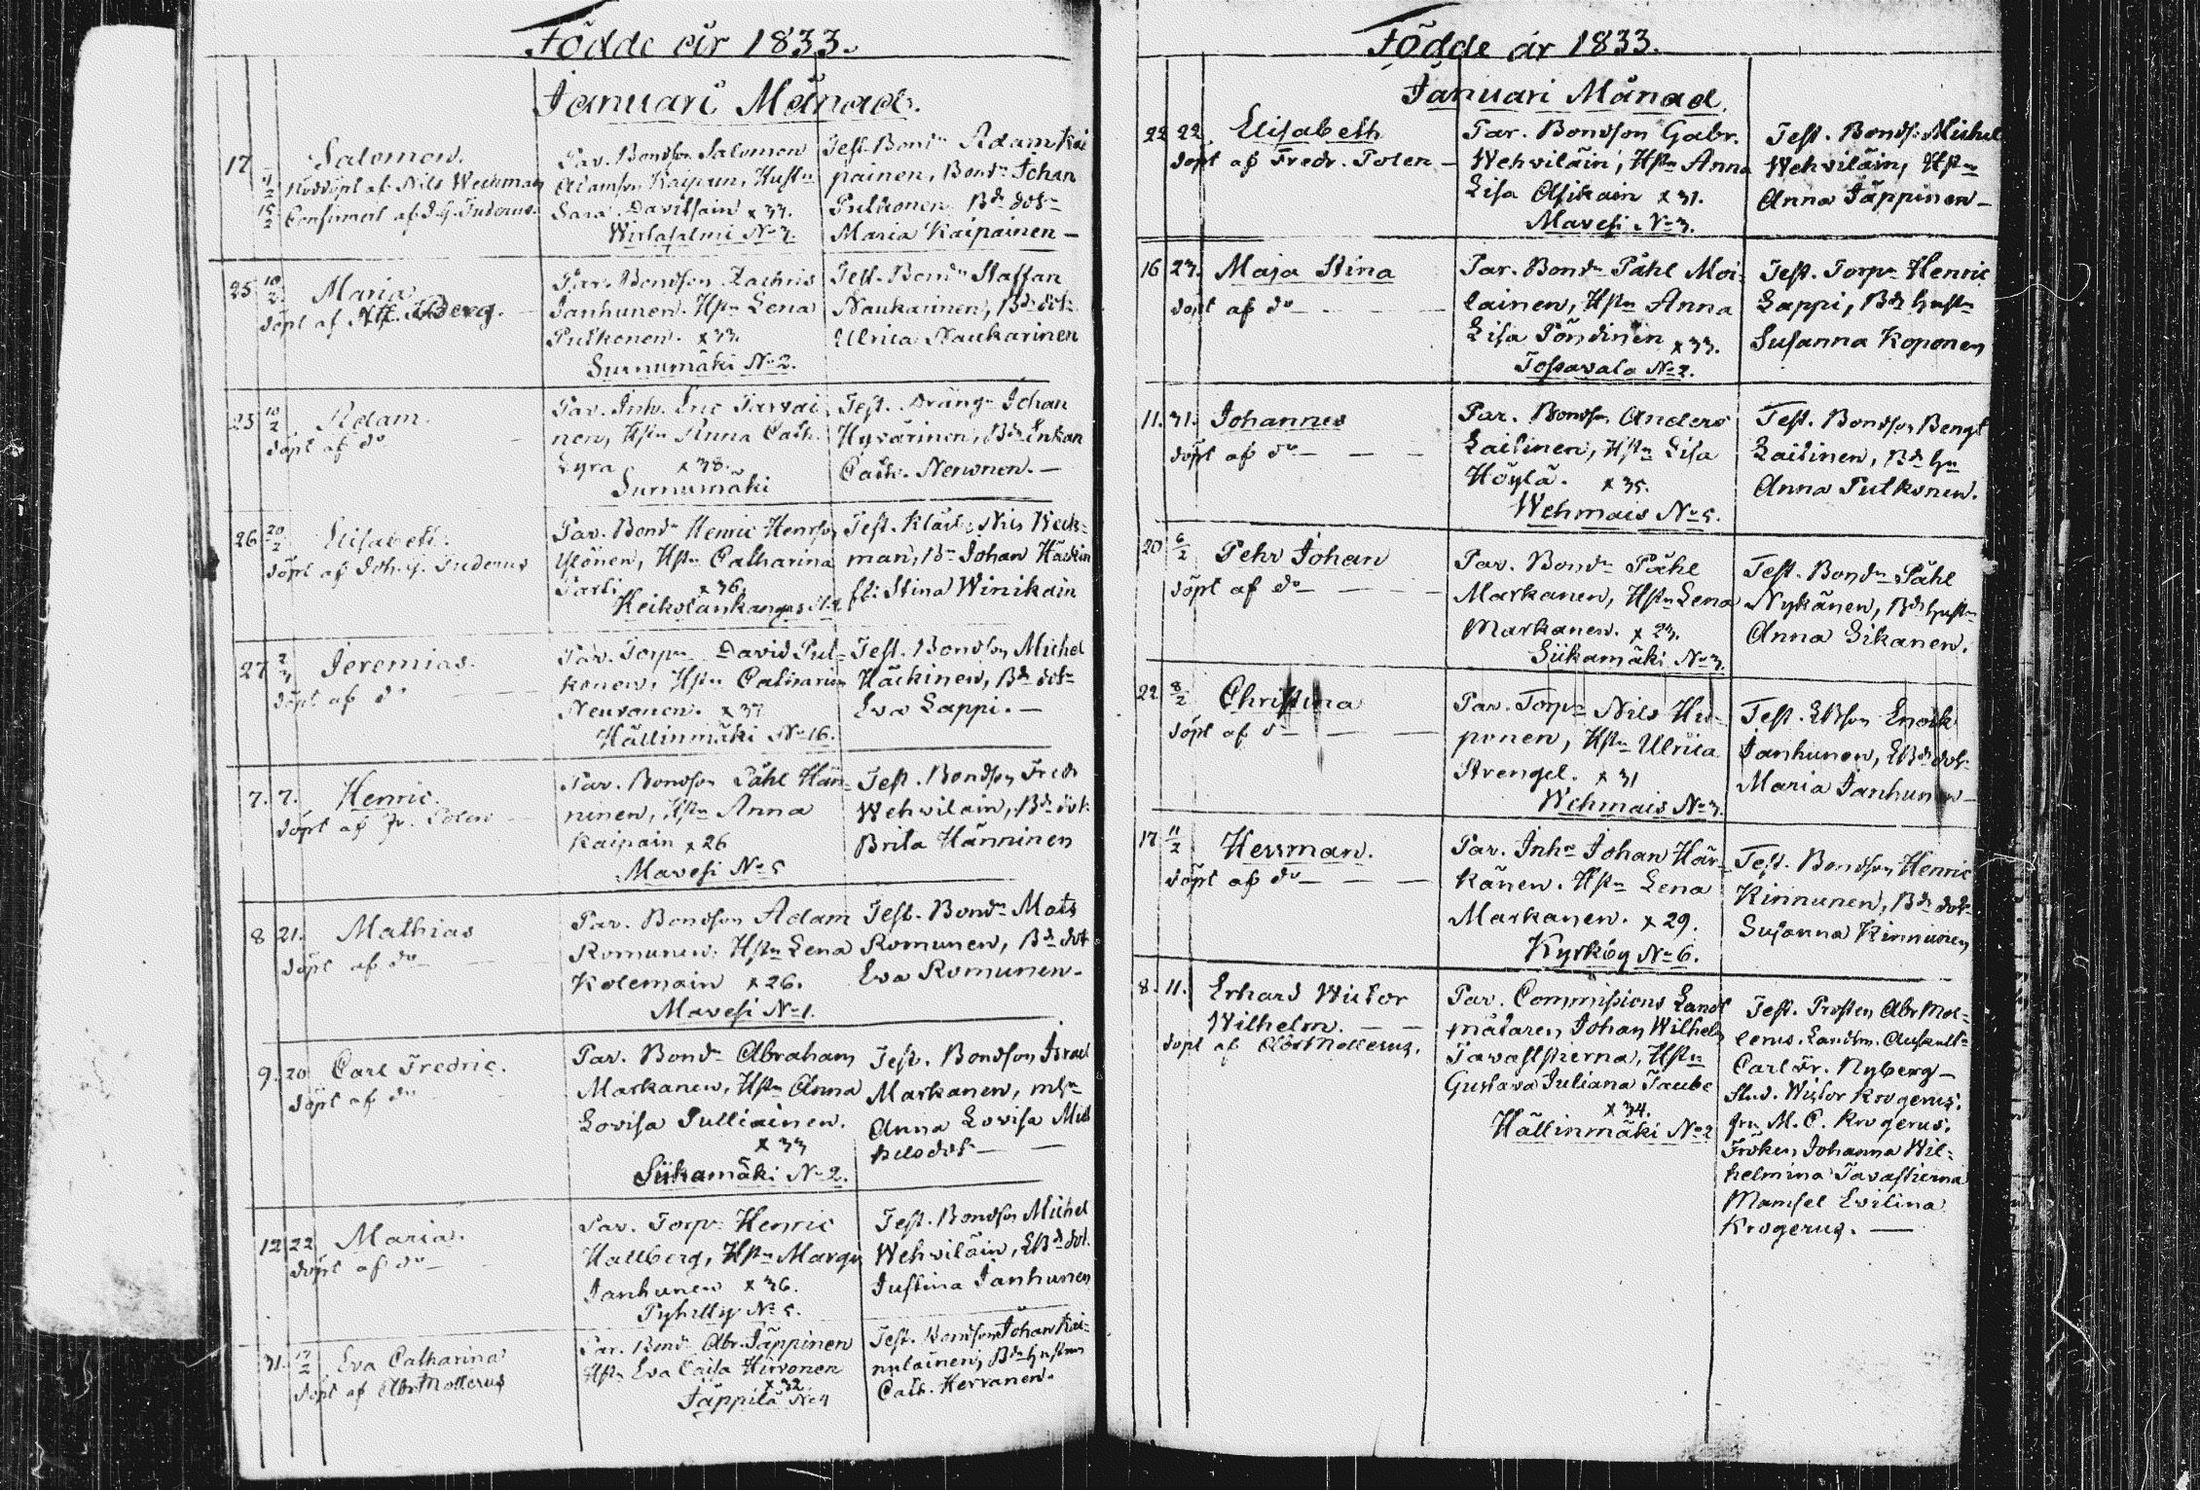 Födde år 1833.
Januari Månad.
17 4/2 Salomon.
Nöddöpt af Nils Weckman
15/2 Confirmert af J. G. Juderus.
Par. Bondson Salomon
Adamson Kaipain, Hustn
Sara Davitsain x 33.
Wirtasalmi No 3.
Test. Bondn Adam Kai
painen, Bondn Johan
Pulkonen Bde dotr
Maria Kaipainen —
25 10/2 Maria
döpt af Berg. —
Par. Bondson Zachris
Janhunen. Hstn Lena
Pulkonen. x 33.
Surnumäki No 2.
Test. Bondn Staffan
Naukarinen, Bde dotr
Ulrica Naukarinen
23 10/2 Adam.
döpt af do —
Par. Inh. Eric Parvai
nen, Hstn Anna Cath.
Lyra x 38.
Surnumäki
Test. Dräng Johan
Hyvärinen, Bde Enkan
Cath. Newonen. —
26 20/2 Elisabeth.
döpt af Joh. G. Juderus
Par. Bondn Henric Henrson
Ylönen, Hstn Catharina
Parti x 36.
Heikolankangas
Test. Klåck. Nils Weck=
man, Bn Johan Häckin
fl. Stina Winikain
27 2/3 Jeremias.
döpt af do —
Par. Torpn David Pul=
konen, Hstn Catharina
Neuvonen. x 37
Hällinmäki No 16.
Test. Bondson Michel
Häckinen, Bde dotr
Eva Lappi. —
7. 7. Henric.
döpt af Fr. Polen —
Par. Bondson Påhl Hän=
ninen, Hstn Anna
Kaipain x 26
Mavesi No 5
Test. Bondson Fredr
Wehvilain, Bde dotr
Brita Hänninen
8 21. Mathias
döpt af do —
Par. Bondson Adam
Romunen. Hstn Lena
Kolemain x 26.
Mavesi No 1.
Test. Bondn Mats
Romunen, Bde dotr
Eva Romunen —
9. 20 Carl Fredric.
döpt af do —
Par. Bondn Abraham
Markanen, Hstn Anna
Lovisa Pulliainen.
x 33
Siikamäki No 2.
Test. Bondson Israel
Markanen,
Anna Lovisa Mick
helsdotr —
12 22 Maria.
döpt af do —
Par. Torpn Henric
Hallberg, Hstn Margr
Janhunen x 36.
Pyhitty No 5.
Test. Bondson Michel
Wehviläin, Bde dot.
Justina Janhunen
31. 17/2 Eva Catharina
döpt af Abr. Mollerus
Par. Bondn Abr. Jäppinen
Hstn Eva Caisa Hirvonen
x 32
Jäppilä No 4
Test. Bondson Johan Kai=
nulainen, Bde Hustrun
Cath. Herranen.
Födde år 1833.
Januari Månad.
22 22 Elisabeth
döpt af Fredr. Polen —
Par. Bondson Gabr.
Wehviläin, Hstn Anna
Lisa Asikain x 31.
Mavesi No 3.
Test. Bonds. Michel
Wehviläin, Hstn
Anna Jäppinen —
16 23. Maja Stina
döpt af do —
Par. Bondn Påhl Moi=
lainen, Hstn Anna
Lisa Pöndinen x 33.
Tossavala No 2.
Test. Torpn Henric
Lappi, Bde Hustn
Susanna Koponen
11. 31. Johannes
döpt af do — — —
Par. Bondson Anders
Laitinen, Hstn Lisa
Höylä. x 35.
Wehmais No 5.
Test. Bondson Bengt
Laitinen, Bde Hn
Anna Pulkonen.
20 6/2 Pehr Johan
döpt af do — — —
Par. Bondn Påhl
Markanen, Hstn Lena
Markanen. x 23.
Siikamäki No 3.
Test. Bondn Påhl
Nykänen, Bde Hustn
Anna Sikanen.
22 8/2 Christina
döpt af do — — —
Par. Torpn Nils Hu=
ponen, Hstn Ulrica
Strengel. x 31
Wehmais No 3.
Test. Enoik
Janhunen, dotr
Maria Janhunen —
17 11/2 Herrman.
döpt af do — — —
Par. Inhs Johan Här=
känen. Hstn Lena
Markanen. x 29.
Kyrköy No 6.
Test. Bondson Henric
Kinnunen, Bde dotr
Susanna Kinnunen
8. 11. Erhard Wictor
Wilhelm. — —
döpt af Abr Mollerus.
Par. Commissions Landt
mätaren Johan Wilhelm
Tavaststierna, Hstn
Gustava Juliana Taube
x 34.
Hällinmäki No 2
Test. Prosten Abr Mol=
lerus. Landtm. Auskult=
Carl Fr. Nyberg —
Stud. Wictor Krogerus.
fru M. C. Krogerus.
Fröken Johanna Wil=
helmina Tavastierna
Mamsel Evelina
Krogerus. —